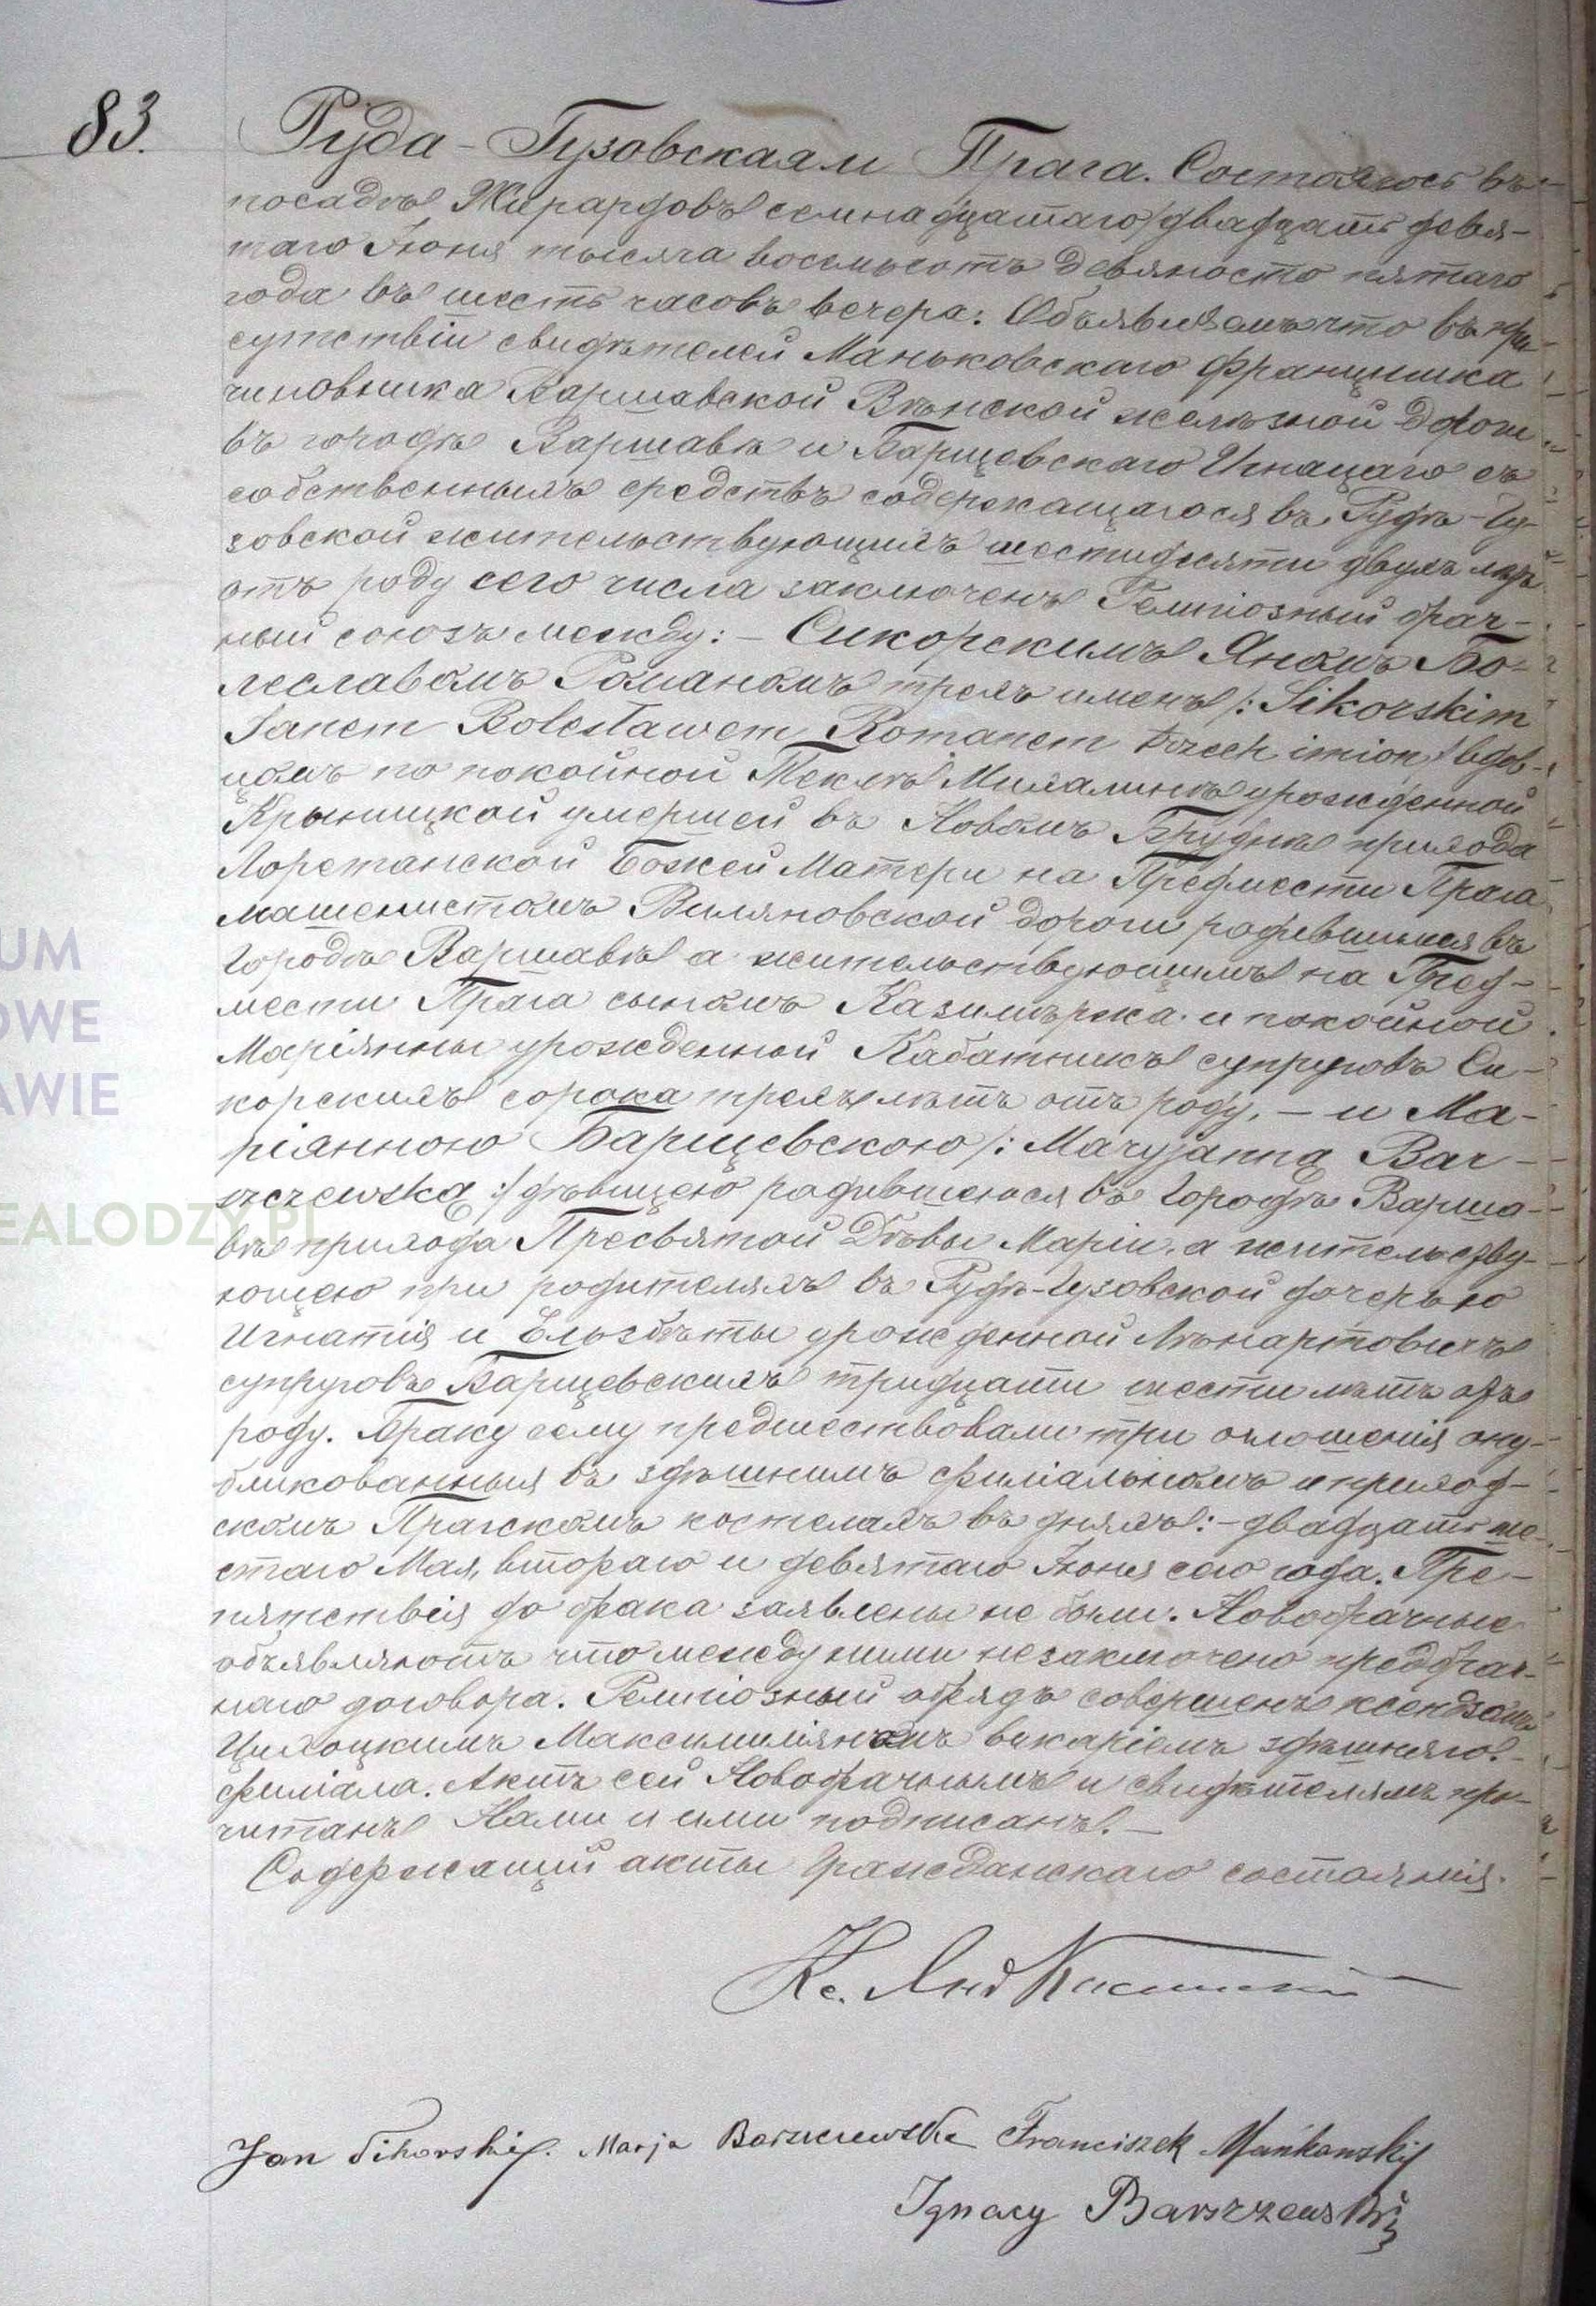 83.
Руда-Гузовская и Прага. Состоялось въ
посадѣ Жирардовъ семнадцатаго/двадцать девя-
таго Іюня тысяча восемьсотъ девяносто пятаго
года въ шесть часовъ вечера: Объявляемъ что въ при-
сутствіи свидѣтелей Маньковскаго Францишка
чиновника Варшавской Вѣнской желѣзной дороги
въ городѣ Варшавѣ и Барщевскаго Игнацаго съ
собственныхъ средствъ содержащагося въ Рудѣ-Гу-
зовской жительствующихъ шестидесяти двухъ лѣтъ
отъ роду сего числа заключенъ Религіозный брач-
ный союзъ между: - Сикорскимъ Яномъ Бо-
леславомъ Романомъ трехъ именъ /: Sikorskim
Janem Bolesławem Romanem trzech imion / вдов-
цомъ по покойной Теклѣ Михалинѣ урожденной
Крыницкой умершей въ Новомъ Брудне прихода
Лоретанской Божей Матери на Предмести Прага
машенистомъ Виляновской дороги родившимся въ
городѣ Варшавѣ а жительствующимъ на Пред-
мести Прага сыномъ Казимѣржа и покойной
Маріянны урожденной Кабатникъ супруговъ Си-
корскихъ сорока трехъ лѣтъ отъ роду, - и Ма-
ріянною Барщевскою /: Maryjanną Bar-
szczewską :/ дѣвицею родившеюся въ городѣ Варша-
вѣ прихода Пресвятой Дѣвы Маріи, а жительству-
ющею при родителяхъ въ Рудѣ-Гузовской дочерью
Игнатія и Ельзбѣты урожденной Лѣнартовичъ
супруговъ Барщевскихъ тридцати шести лѣтъ отъ
роду. Браку сему предшествовали три оглошенія опу-
бликованныя въ здѣшнимъ филіальномъ и приход-
скомъ Пражскомъ костелахъ въ дняхъ: - двадцать ше-
стаго Мая, втораго и девятаго Іюня сего года. Пре-
пятствія до брака заявлены не были. Новобрачные
объявляютъ что между ними незаключено предбрач-
наго договора. Религіозный обрядъ совершенъ ксендзомъ
Максимиліяномъ викаріемъ здѣшняго
филіала. Актъ сей Новобрачнымъ и свидѣтелямъ про-
читанъ Нами и ими подписанъ. -
Содержащій акты гражданскаго состоянія.
Кс.
Jan Sikorski. Marja Barszczewska Franciszek Mańkowski
Ignacy Barszzewski
UM
OWE
AWIE
EALODZY.PL